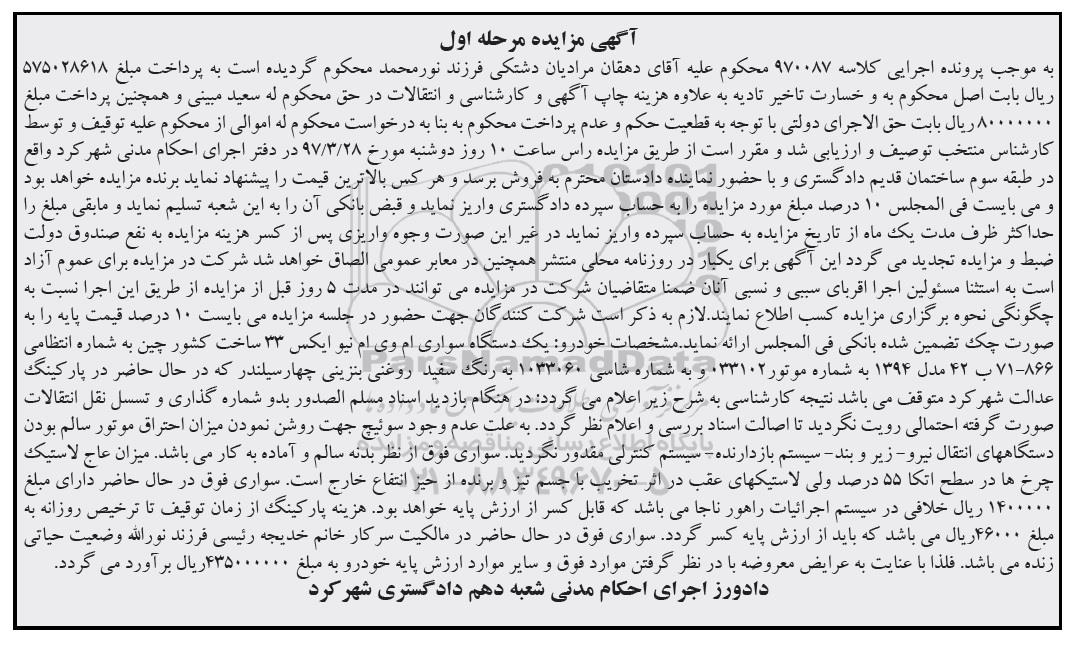 آگهی مزایده مرحله اول
به موجب پرونده اجرایی کلاسه ۹۷۰۰۸۷ محکوم علیه آقای دهقان مرادیان دشتکی فرزند نورمحمد محکوم گردیده است به پرداخت مبلغ ۵۷۵۰۲۸۶۱۸
ریال بابت اصل محکوم به و خسارت تاخیر تادیه به علاوه هزینه چاپ آگهی و کارشناسی و انتقالات در حق محکوم له سعید مبینی و همچنین پرداخت مبلغ
۸۰۰۰۰۰۰۰ ریال بابت حق الاجرای دولتی با توجه به قطعیت حکم و عدم پرداخت محکوم به بنا به درخواست محکوم له اموالی از محکوم علیه توقیف و توسط
کارشناس منتخب توصیف و ارزیابی شد و مقرر است از طریق مزایده راس ساعت ۱۰ روز دوشنبه مورخ ۹۷/۳/۲۸ در دفتر اجرای احکام مدنی شهرکرد واقع
در طبقه سوم ساختمان قدیم دادگستری و با حضور نماینده دادستان محترم به فروش برسد و هر کس بالاترین قیمت را پیشنهاد نماید برنده مزایده خواهد بود
و می بایست فی المجلس ۱۰ درصد مبلغ مورد مزایده را به حساب سپرده دادگستری واریز نماید و قبض بانکی آن را به این شعبه تسلیم نماید و مابقی مبلغ را
حداکثر ظرف مدت یک ماه از تاریخ مزایده به حساب سپرده واریز نماید در غیر این صورت وجوه واریزی پس از کسر هزینه مزایده به نفع صندوق دولت
ضبط و مزایده تجدید می گردد این آگهی برای یکبار در روزنامه محلی منتشر همچنین در معابر عمومی الصاق خواهد شد شرکت در مزایده برای عموم آزاد
است به استثنا مسئولین اجرا اقربای سببی و نسبی آنان ضمنا متقاضیان شرکت در مزایده می توانند در مدت ۵ روز قبل از مزایده از طریق این اجرا نسبت به
چگونگی نحوه برگزاری مزایده کسب اطلاع نمایند.لازم به ذکر است شرکت کنندگان جهت حضور در جلسه مزایده می بایست ۱۰ درصد قیمت پایه را به
صورت چک تضمین شده بانکی فی المجلس ارائه نماید.مشخصات خودرو: یک دستگاه سواری ام وی ام نیو ایکس ۳۳ ساخت کشور چین به شماره انتظامی
۷۱-۸۶۶ ب ۴۲ مدل ۱۳۹۴ به شماره موتور ۰۳۳۱۰۲ و به شماره شاسی ۱۰۳۳۰۶۰ به رنگ سفید روغنی بنزینی چهارسیلندر که در حال حاضر در پارکینگ
عدالت شهرکرد متوقف می باشد نتیجه کارشناسی به شرح زیر اعلام می گردد: در هنگام بازدید اسناد مسلم الصدور بدو شماره گذاری و تسسل نقل انتقالات
صورت گرفته احتمالی رویت نگردید تا اصالت اسناد بررسی و اعلام نظر گردد. به علت عدم وجود سوئیچ جهت روشن نمودن میزان احتراق موتور سالم بودن
دستگاههای انتقال نیرو- زیر و بند- سیستم بازدارنده- سیستم کنترلی مقدور نگردید. سواری فوق از نظر بدنه سالم و آماده به کار می باشد. میزان عاج لاستیک
چرخ ها در سطح اتکا ۵۵ درصد ولی لاستیکهای عقب در اثر تخریب با جسم تیز و برنده از حیز انتفاع خارج است. سواری فوق در حال حاضر دارای مبلغ
۱۴۰۰۰۰۰ ریال خلافی در سیستم اجرائیات راهور ناجا می باشد که قابل کسر از ارزش پایه خواهد بود. هزینه پارکینگ از زمان توقیف تا ترخیص روزانه به
مبلغ ۴۶۰۰۰ریال می باشد که باید از ارزش پایه کسر گردد. سواری فوق در حال حاضر در مالکیت سرکار خانم خدیجه رئیسی فرزند نورالله وضعیت حیاتی
زنده می باشد. فلذا با عنایت به عرایض معروضه با در نظر گرفتن موارد فوق و سایر موارد ارزش پایه خودرو به مبلغ ۴۳۵۰۰۰۰۰۰ریال برآورد می گردد.
دادورز اجرای احکام مدنی شعبه دهم دادگستری شهرکرد
ParsNamadData
پایگاه اطلاع رسانی مناقصه و مزایده
۰۲۱-۸۸۳۴۹۶۷۰-۵